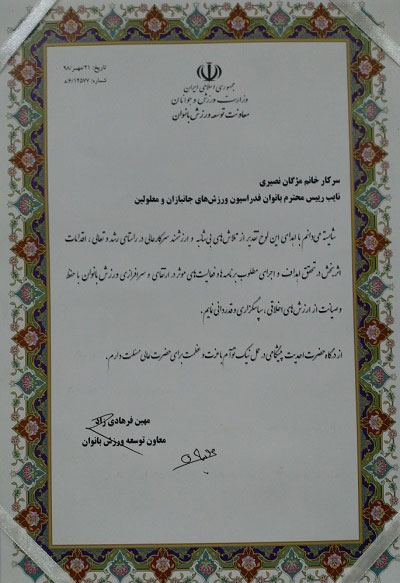 تاریخ: ۲۱/مهر/۹۸
شماره: ۸/۴/۱۲۵۷۷د
جمهوری اسلامی ایران
وزارت ورزش و جوانان
معاونت توسعه ورزش بانوان
سرکار خانم مژگان نصیری
نایب رییس محترم بانوان فدراسیون ورزش‌های جانبازان و معلولین
شایسته می‌دانم با اهدای این لوح تقدیر از تلاش‌های بی‌شائبه و ارزشمند سرکارعالی در راستای رشد و تعالی، اقدامات
اثربخش در تحقق اهداف و اجرای مطلوب برنامه‌ها و فعالیت‌های موثر در ارتقای و سرافرازی ورزش بانوان با حفظ
و صیانت از ارزش‌های اخلاقی، سپاسگزاری و قدردانی نمایم.
از درگاه حضرت احدیت پیشگامی در عمل نیک توأم با عزت و عظمت برای حضرت عالی مسئلت دارم.
مهین فرهادی زاد
معاون توسعه ورزش بانوان